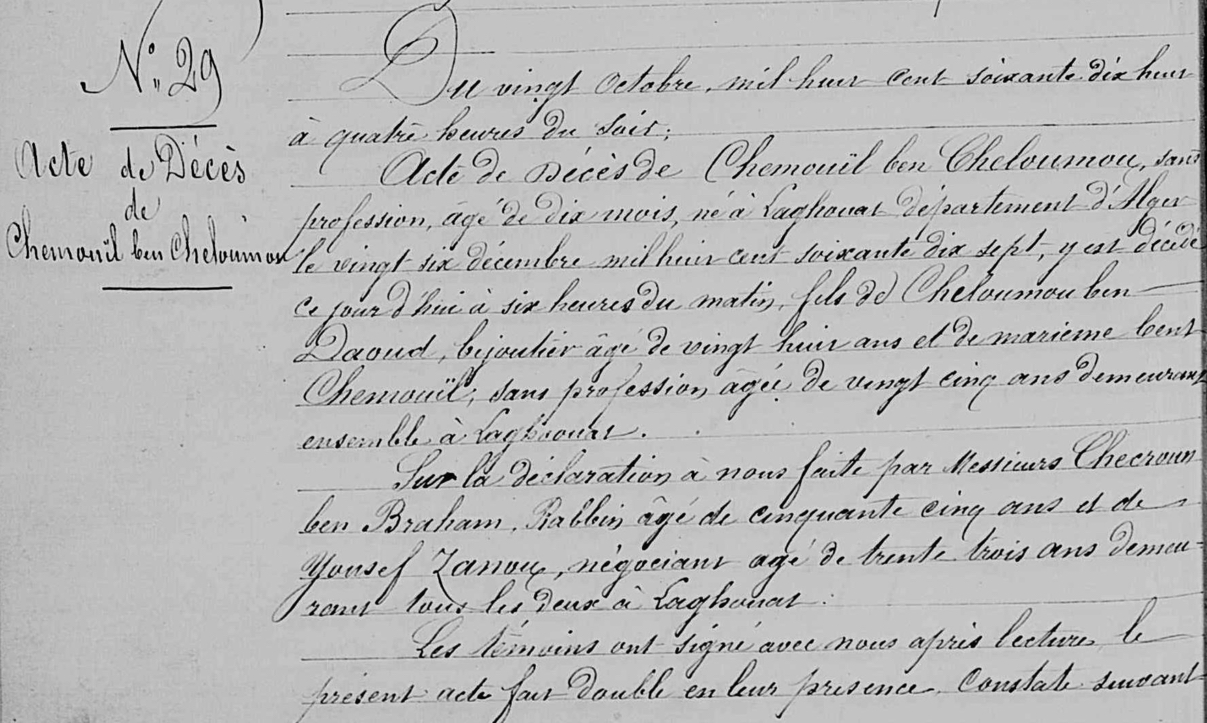 N° 29
Acte de Décès
de
Chemouïl ben Cheloumou
Du vingt Octobre, mil huit cent soixante dix huit
à quatre heures du soir;
Acte de Décès de Chemouïl ben Cheloumou, sans
profession, âgé de dix mois, né à Laghouat département d'Alger
le vingt six décembre mil huit cent soixante dix sept, y est décédé
ce jour d'hui à six heures du matin, fils de Cheloumou ben
Daoud, bijoutier âgé de vingt huit ans et de marieme bent
Chemouïl, sans profession âgée de vingt cinq ans demeurant
ensemble à Laghouat.
Sur la déclaration à nous faite par Messieurs Checroun
ben Braham, Rabbin âgé de cinquante cinq ans et de
Yousef Zanou, négociant agé de trente trois ans demeu-
rant tous les deux à Laghouat:
Les témoins ont signé avec nous après lecture, le
présent acte fait double en leur présence, Constaté suivant